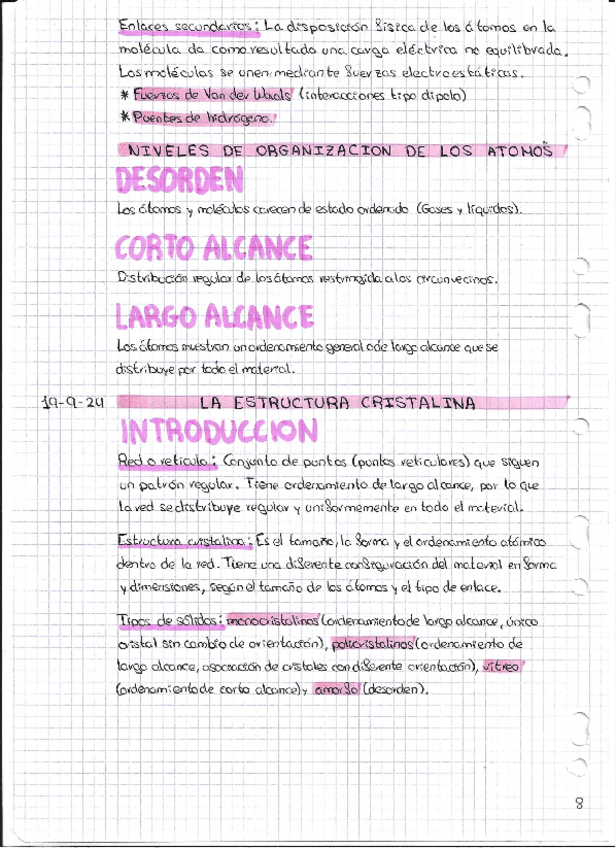 Enlaces secundarios: La disposición física de los átomos en la
molécula da como resultado una carga eléctrica no equilibrada.
Las moléculas se unen mediante fuerzas electroestáticas.
* Fuerzas de Van der Waals (interacciones tipo dipolo)
* Puentes de hidrógeno.
NIVELES DE ORGANIZACION DE LOS ATOMOS
DESORDEN
Los átomos y moléculas carecen de estado ordenado (Gases y líquidos).
CORTO ALCANCE
Distribución regular de los átomos restringida a los circunvecinos.
LARGO ALCANCE
Los átomos muestran un ordenamiento general o de largo alcance que se
distribuye por todo el material.
19-9-24 LA ESTRUCTURA CRISTALINA
INTRODUCCION
Red o retículo: Conjunto de puntos (puntos reticulares) que siguen
un patrón regular. Tiene ordenamiento de largo alcance, por lo que
la red se distribuye regular y uniformemente en todo el material.
Estructura cristalina: Es el tamaño, la forma y el ordenamiento atómico
dentro de la red. Tiene una diferente configuración del material en forma
y dimensiones, según el tamaño de los átomos y el tipo de enlace.
Tipos de sólidos: monocristalinos (ordenamiento de largo alcance, único
cristal sin cambio de orientación), policristalinos (ordenamiento de
largo alcance, asociación de cristales con diferente orientación), vítreo
(ordenamiento de corto alcance) y amorfo (desorden).
8